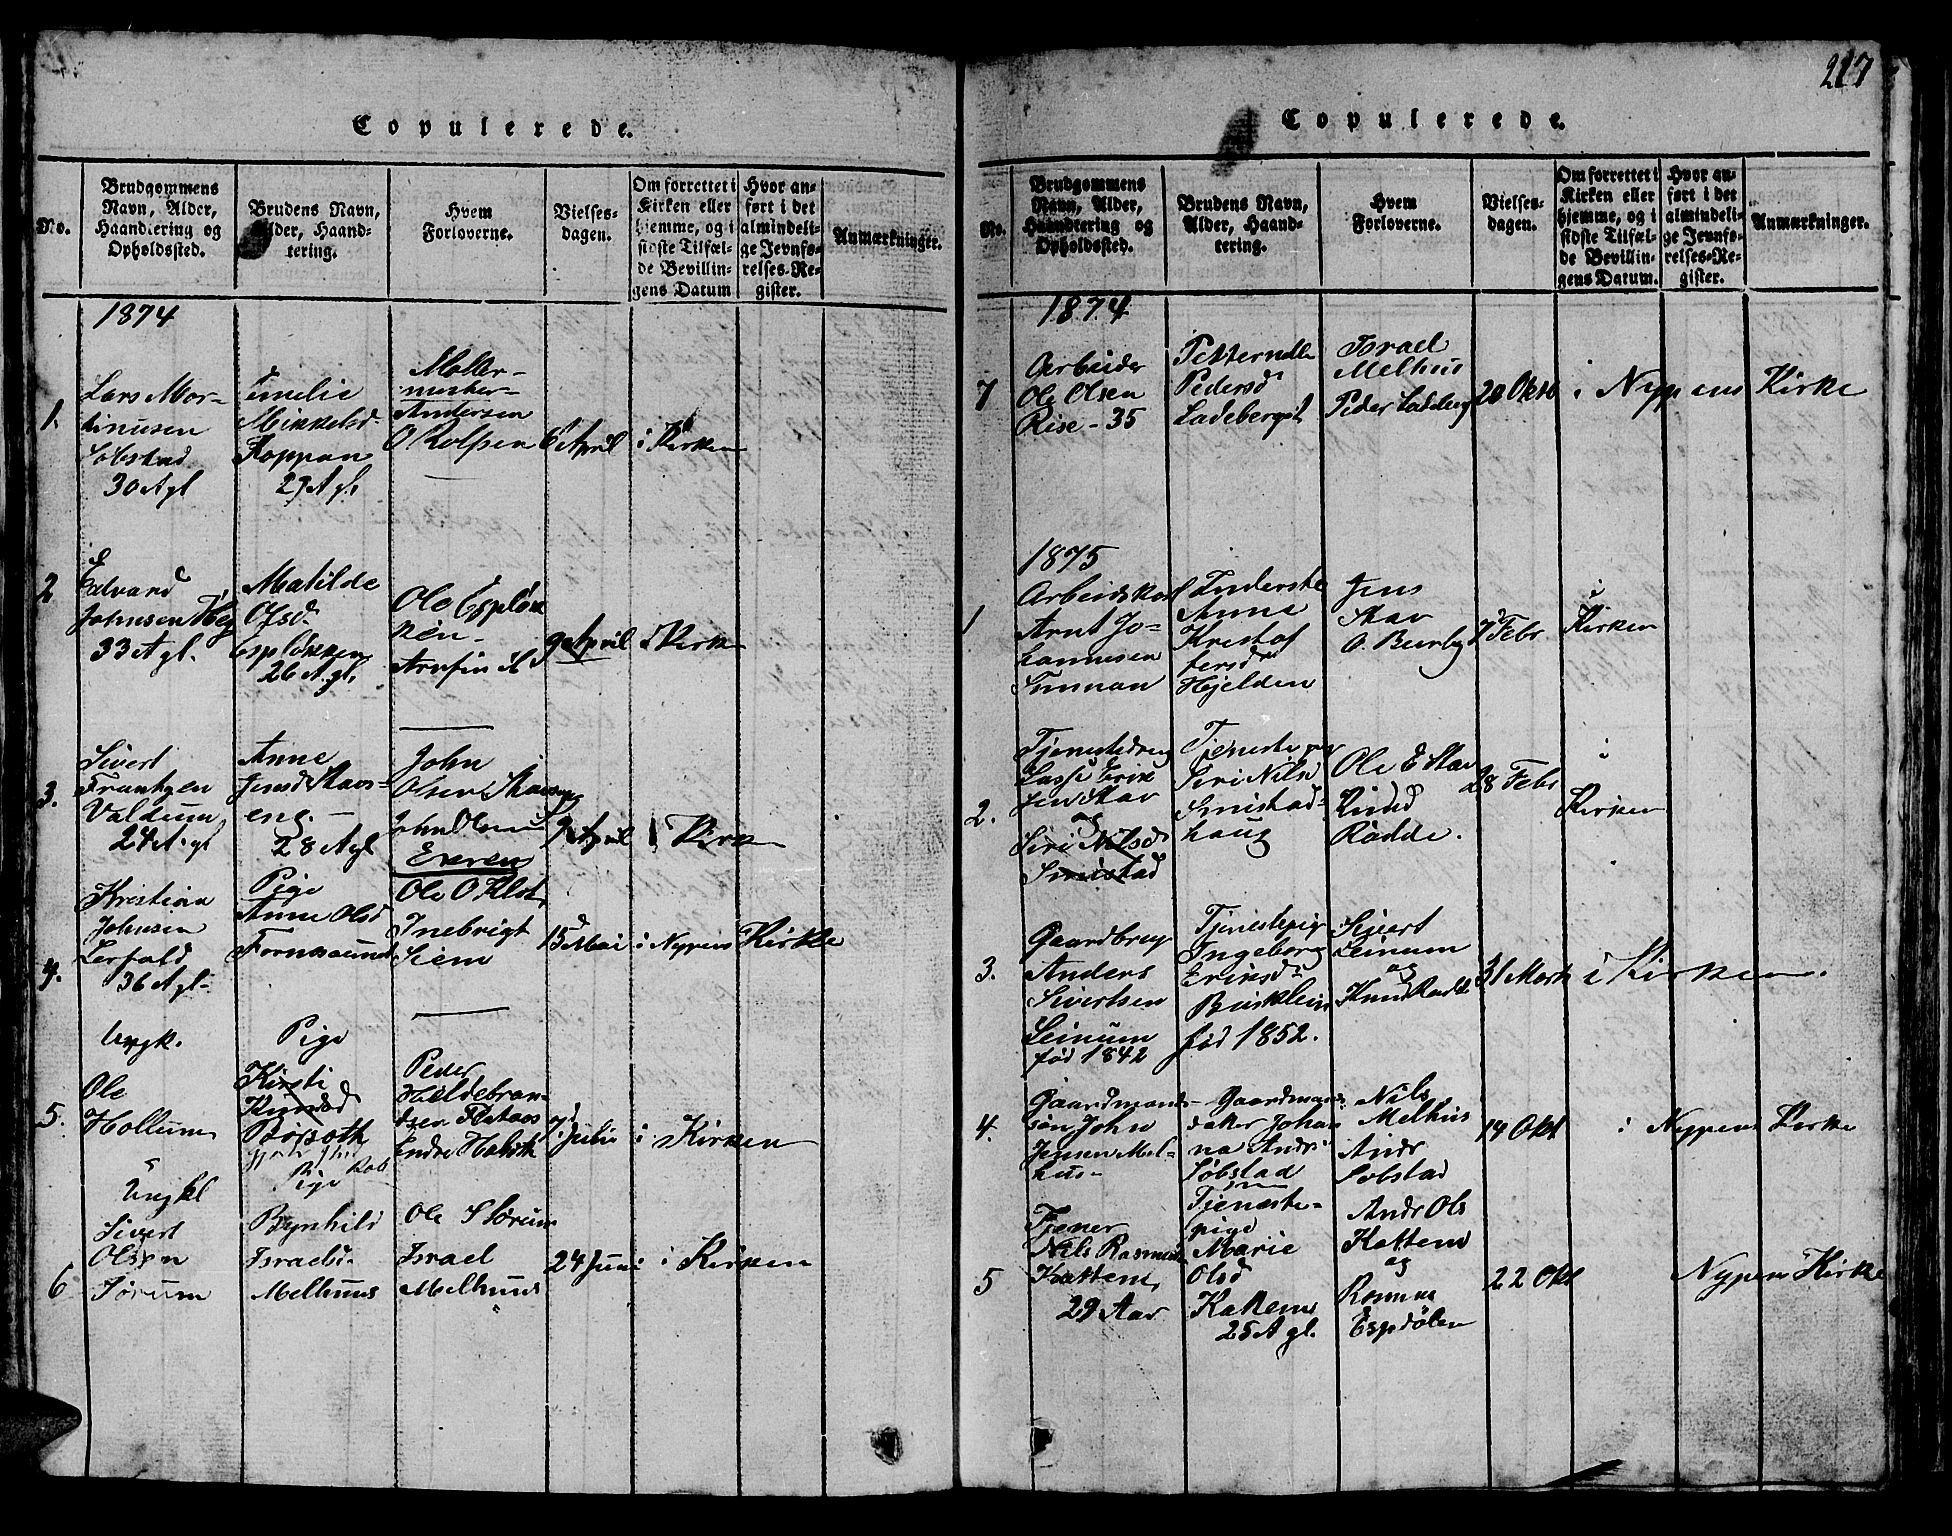 217
Copulerede.
No.
Brudgommens
Navn, Alder,
Haandtering og
Opholdssted.
Brudens Navn,
Alder, Haand-
tering.
Hvem
Forloverne.
Vielses-
dagen.
Om forrettet i
Kirken eller
hjemme, og i
sidste Tilfæl-
de Bevillin-
gens Datum
Hvor an-
ført i det
almindeli-
ge Jevnfø-
relses-Re-
gister.
Anmærkninger.
1874
1.
Lars Mor-
tinusen
Sobstad
30 Agl
Emelie
Mikkelsd
Koppan
29 Agl.
Møller-
mester
Andersen
O Rolfsen
6 April
i Kirken
2
Edvard
Johnsen Høg
33 Agl.
Matilde
Olsd
Espløkken
26 Agl.
Ole Espløk
ken
9 April
i Kirk
3.
Sivert
Frantzen
Valdum
24 Agl
Anne
Jensd Stavs-
eng.
28 Agl
John
Olsen
John Olsen
9 April
i Kirk
4.
Kristian
Johnsen
Lerfald
36 Agl.
Pige
Anne Olsd
Fornesund
Ole O Klet
Inebrigt
Siem
15 Mai
i Nypens Kirke
5.
Ungk.
Ole
Hollum
Pige
Kirsti
Knudsd
Børseth
Peder
Hildebran-
dsen Flataas
Endre Hobstk
7 Juli
i Kirken
6
Ungkl
Sivert
Olsen
Sørum
Pige
Brynhild
Israelsd.
Melhuus
Ole S Sørum
Israel
Melhuus
24 Juni
i Kirken
Copulerede.
No.
Brudgommens
Navn, Alder,
Haandtering og
Opholdssted.
Brudens Navn,
Alder, Haand-
tering.
Hvem
Forloverne.
Vielses-
dagen.
Om forrettet i
Kirken eller
hjemme, og i
sidste Tilfæl-
de Bevillin-
gens Datum.
Hvor an-
ført i det
almindeli-
ge Jevnfø-
relses-Re-
gister.
Anmærkninger.
1874
7
Arbeider
Ole Olsen
Rise - 35
Petternelle
Pedersd
Ladeberget
Israel
Melhus
Peder Ladeberg
20 Oktb
i Nypens Kirke
1875
1
Arbeidskarl
Arnt Jo-
hannesen
Sunnan
Tjenerste
Anne
Kristof
fersd
Hjelden
Jens
Stav
O. Burby
7 Febr
i
Kirken
2.
Tjenestedreng
Lasse Erik
Jen Stav
og
Siri Nilsd
Smistad
Tjenestepige
Siri Nils
Smistad-
haug
Ole E Stav
Knud
Rødde.
28 Febr
i
Kirken
3.
Gaardbrug
Anders
Sivertsen
Leinum
fød 1842
Tjenestepig
Ingeborg
Eriksd
Busklein
fød 1852.
Sivert
Leinum
og
Knud Rødde
31 Marts
i Kirken.
4.
Gaardmands-
søn John
Jensen Mel-
hus-
Gaardmand
datter Johan
na Andr
Søbstad
Nils
Melhus
Andr
Sobstad
14 Okt
i Nypens Kirke
5
Tjener
Nils Rasmus
Kattem
29 Aar
Tjeneste-
pige
Marie
Olsd
Kattem
25 Agl.
Andr Ols
Kattem
og
Rasmus
Espdølen
22 Okt
Nypens Kirke